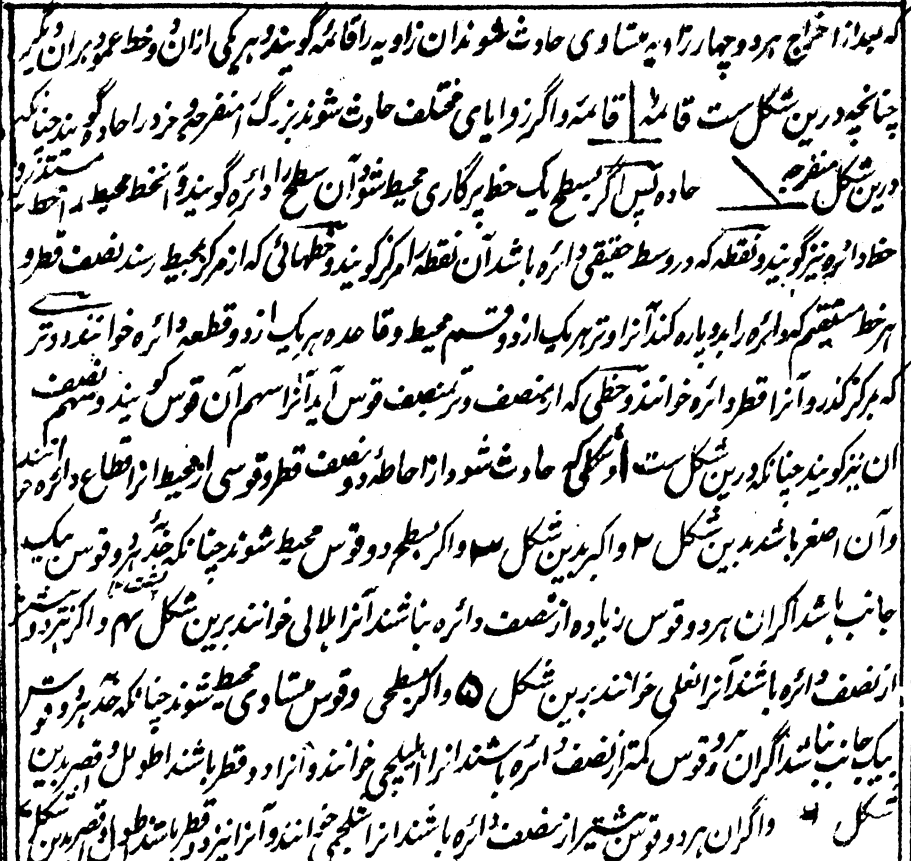 که بعد از اخراج هر دو چهار زاویه متساوی حادث شوند آن زاویه را قائمه گویند و هر یکی ازان دو خط عمود بران دیگر
چنانچه درین شکل ست قائمه قائمه و اگر زوایای مختلف حادث شوند بزرگ را منفرجه و خرد را حاده گویند چنانکه
درین شکل منفرجه حاده پس اگر بسطح یک خط پرکاری محیط شود آن سطح را دائره گویند و آنخط محیط
خط دائره نیز گویند و نقطه که در وسط حقیقی دائره باشد آن نقطه را مرکز گویند و خطهائی که از مرکز بمحیط رسند نصف قطر و
هر خط مستقیم که دائره را بدو پاره کند آنرا وتر هر یک از دو قسم محیط و قاعده هر یک از دو قطعه دائره خوانند و وتری
که بمرکز گذرد آنرا قطر دائره خوانند و خطی که از منصف وتر بمنصف قوس آید آنرا سهم آن قوس گویند و سهم نصیف
آن نیز گویند چنانکه درین شکل ست ۱ و شکلی که حادث شود از احاطه دو نصف قطر و قوسی از محیط آنرا قطاع دائره خوانند
و آن اصغر باشد بدین شکل ۲ و اکبر بدین شکل ۳ و اگر بسطح دو قوس محیط شوند چنانکه حدبه هر دو قوس بیک
جانب باشد اگر آن هر دو قوس زیاده از نصف دائره نباشند آنرا هلالی خوانند برین شکل ۴ و اگر هر دو بیشتر
از نصف دائره باشند آنرا نعلی خوانند برین شکل ۵ و اگر بسطحی دو قوس متساوی محیط شوند چنانکه حدبه هر دو قوس
بیک جانب نباشد اگر آن هر دو قوس کمتر از نصف دائره باشند آنرا اهلیلجی خوانند و آنرا دو قطر باشند اطول و اقصر بدین
شکل ۶ و اگر آن هر دو قوس بیشتر از نصف دائره باشند آنرا شلجمی خوانند و آنرا نیز دو قطر باشند اطول و اقصر بدین شکل